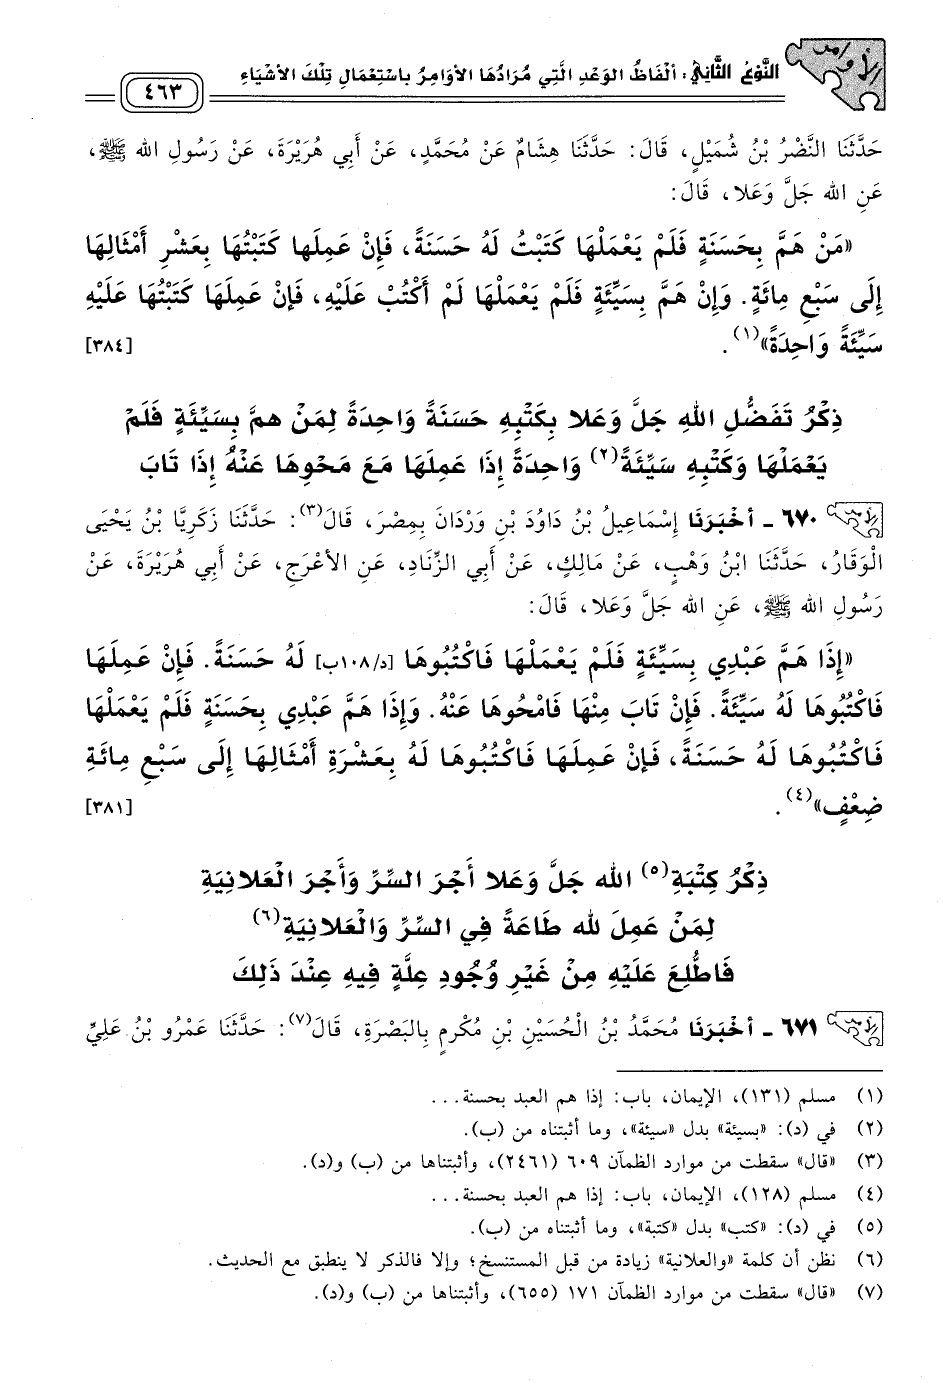 الأوامر
النَّوْعُ الثَّانِي: أَلْفَاظُ الوَعْدِ الَّتِي مُرَادُهَا الأَوَامِرُ بِاسْتِعْمَالِ تِلْكَ الأَشْيَاءِ
٤٦٣
حَدَّثَنَا النَّضْرُ بْنُ شُمَيْلٍ، قَالَ: حَدَّثَنَا هِشَامٌ عَنْ مُحَمَّدٍ، عَنْ أَبِي هُرَيْرَةَ، عَنْ رَسُولِ الله ﷺ،
عَنِ الله جَلَّ وَعَلا، قَالَ:
«مَنْ هَمَّ بِحَسَنَةٍ فَلَمْ يَعْمَلْهَا كَتَبْتُ لَهُ حَسَنَةً، فَإِنْ عَمِلَها كَتَبْتُهَا بِعَشْرِ أَمْثَالِهَا
إِلَى سَبْعِ مِائَةٍ. وَإِنْ هَمَّ بِسَيِّئَةٍ فَلَمْ يَعْمَلْهَا لَمْ أَكْتُبْ عَلَيْهِ، فَإِنْ عَمِلَهَا كَتَبْتُهَا عَلَيْهِ
سَيِّئَةً وَاحِدَةً»(١). [٣٨٤]
ذِكْرُ تَفَضُّلِ اللهِ جَلَّ وَعَلا بِكَتْبِهِ حَسَنَةً وَاحِدَةً لِمَنْ هَمَّ بِسَيِّئَةٍ فَلَمْ
يَعْمَلْهَا وَكَتْبِهِ سَيِّئَةً(٢) وَاحِدَةً إِذَا عَمِلَهَا مَعَ مَحْوِهَا عَنْهُ إِذَا تَابَ
٦٧٠ - أَخْبَرَنَا إِسْمَاعِيلُ بْنُ دَاوُدَ بْنِ وَرْدَانَ بِمِصْرَ، قَالَ(٣): حَدَّثَنَا زَكَرِيَّا بْنُ يَحْيَى
الْوَقَارُ، حَدَّثَنَا ابْنُ وَهْبٍ، عَنْ مَالِكٍ، عَنْ أَبِي الزِّنَادِ، عَنِ الأَعْرَجِ، عَنْ أَبِي هُرَيْرَةَ، عَنْ
رَسُولِ الله ﷺ، عَنِ الله جَلَّ وَعَلا، قَالَ:
«إِذَا هَمَّ عَبْدِي بِسَيِّئَةٍ فَلَمْ يَعْمَلْهَا فَاكْتُبُوهَا [د/١٠٨ب] لَهُ حَسَنَةً. فَإِنْ عَمِلَهَا
فَاكْتُبُوهَا لَهُ سَيِّئَةً. فَإِنْ تَابَ مِنْهَا فَامْحُوهَا عَنْهُ. وَإِذَا هَمَّ عَبْدِي بِحَسَنَةٍ فَلَمْ يَعْمَلْهَا
فَاكْتُبُوهَا لَهُ حَسَنَةً، فَإِنْ عَمِلَهَا فَاكْتُبُوهَا لَهُ بِعَشْرَةِ أَمْثَالِهَا إِلَى سَبْعِ مِائَةِ
ضِعْفٍ»(٤). [٣٨١]
ذِكْرُ كِتْبَةِ(٥) الله جَلَّ وَعَلا أَجْرَ السِّرِّ وَأَجْرَ الْعَلَانِيَةِ
لِمَنْ عَمِلَ لله طَاعَةً فِي السِّرِّ وَالْعَلَانِيَةِ(٦)
فَاطُّلِعَ عَلَيْهِ مِنْ غَيْرِ وُجُودِ عِلَّةٍ فِيهِ عِنْدَ ذَلِكَ
٦٧١ - أَخْبَرَنَا مُحَمَّدُ بْنُ الْحُسَيْنِ بْنِ مُكْرَمٍ بِالبَصْرَةِ، قَالَ(٧): حَدَّثَنَا عَمْرُو بْنُ عَلِيٍّ
(١) مسلم (١٣١)، الإيمان، باب: إذا هم العبد بحسنة...
(٢) في (د): «بسيئة» بدل «سيئة»، وما أثبتناه من (ب).
(٣) «قال» سقطت من موارد الظمآن ٦٠٩ (٢٤٦١)، وأثبتناها من (ب) و(د).
(٤) مسلم (١٢٨)، الإيمان، باب: إذا هم العبد بحسنة...
(٥) في (د): «كتب» بدل «كتبة»، وما أثبتناه من (ب).
(٦) نظن أن كلمة «والعلانية» زيادة من قبل المستنسخ؛ وإلا فالذكر لا ينطبق مع الحديث.
(٧) «قال» سقطت من موارد الظمآن ١٧١ (٦٥٥)، وأثبتناها من (ب) و(د).